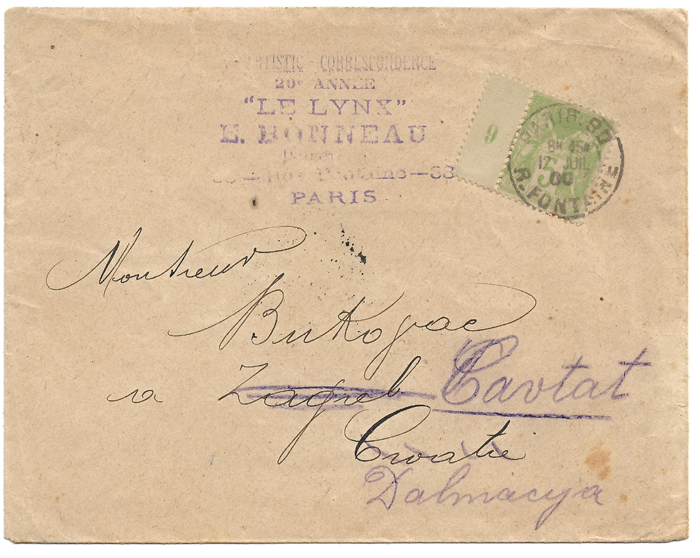 ARTISTIC - CORRESPONDENCE
20e ANNÉE
"LE LYNX"
E. BONNEAU
Rue Fontaine—38
PARIS
6
PARIS. 90
17 JUIL
00
R. FONTAINE
Monsieur
Bukovac
a Zagreb Cavtat
Croatie
Dalmacija